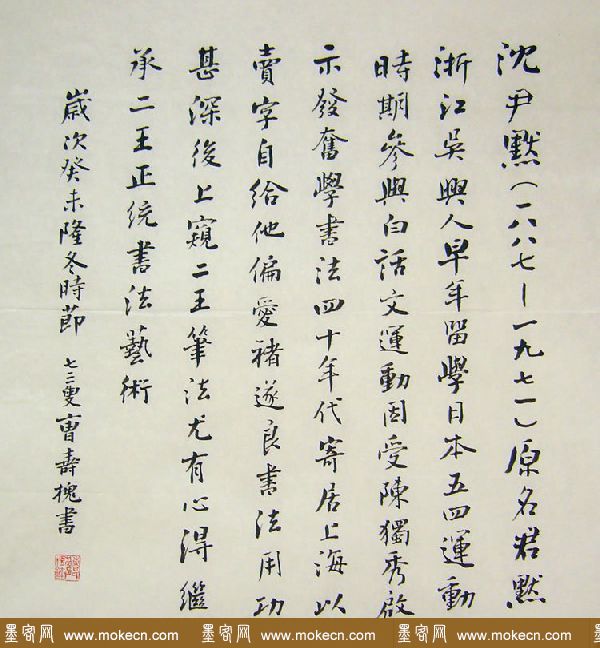 沈尹默(一八八七—一九七一)原名君默
浙江吳興人早年留學日本五四運動
時期參與白話文運動因受陳獨秀啟
示發奮學書法四十年代寄居上海以
賣字自給他偏愛褚遂良書法用功
甚深後上窺二王筆法尤有心得繼
承二王正統書法藝術
歲次癸未隆冬時節 七二叟曹壽槐書
墨客网 www.mokecn.com 墨客网 www.mokecn.com 墨客网 www.mokecn.com